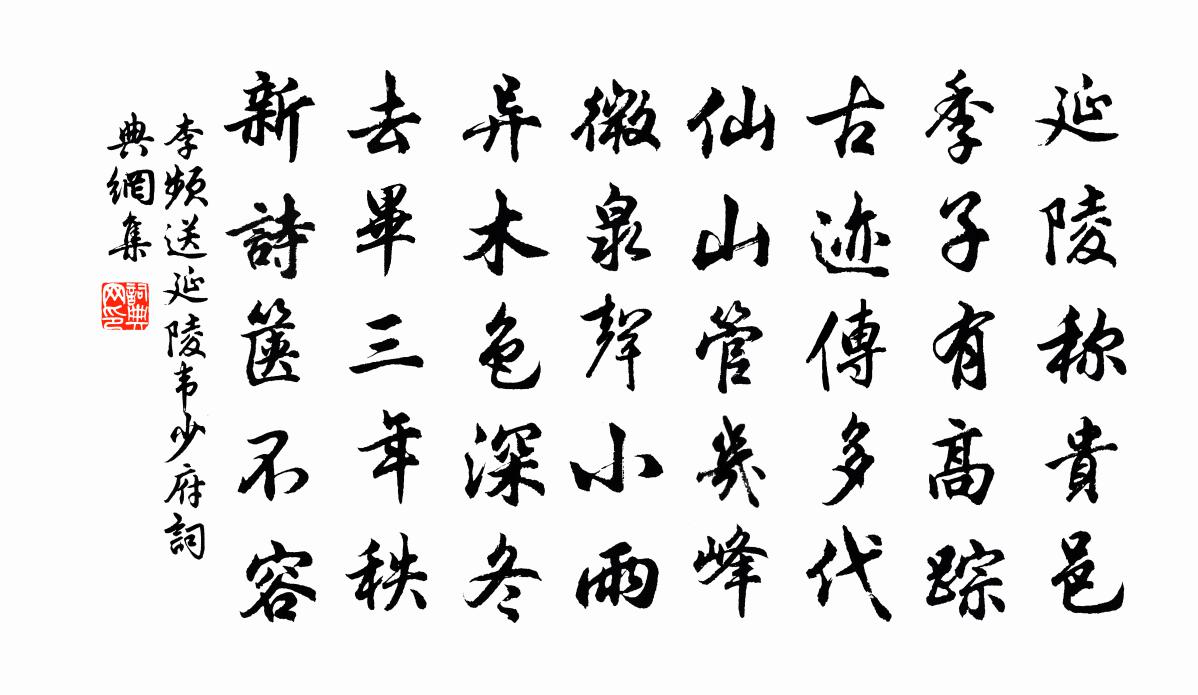 延陵称貴邑
季子有高踪
古迹傳多代
仙山管幾峰
微泉聲小雨
异木色深冬
去畢三年秩
新詩箧不容
李频送延陵韦少府詞
典網集
詞典
网印